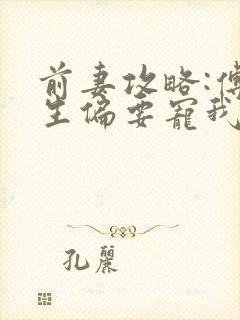 前妻攻略:傅
生偏要寵我
孔麗